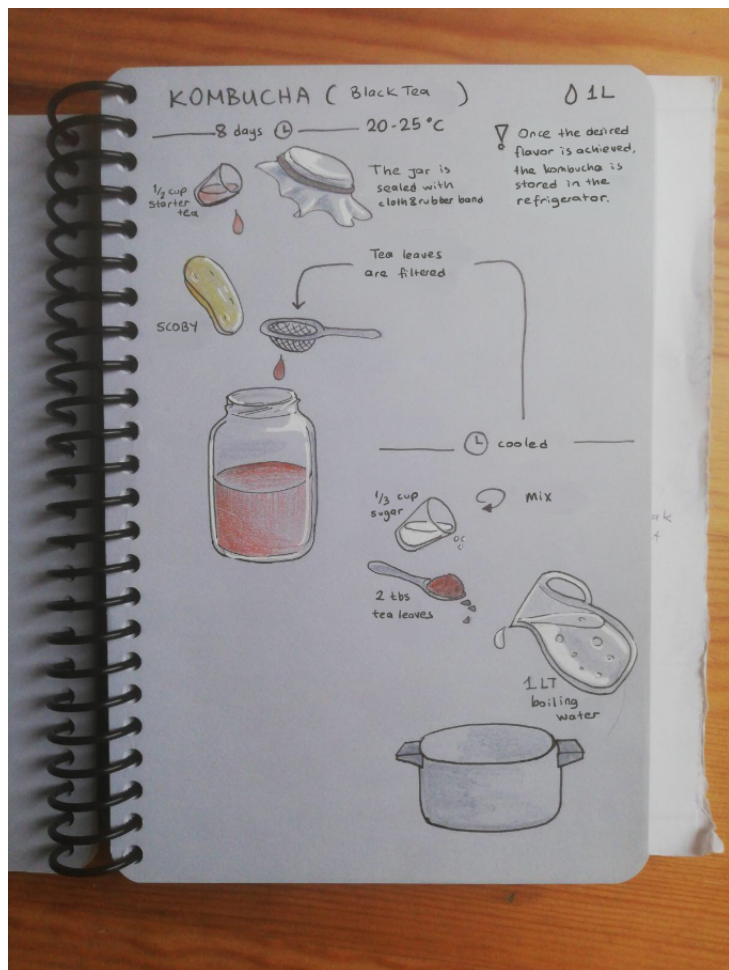 KOMBUCHA ( Black Tea )
1L
8 days
20-25°C
! Once the desired
flavor is achieved,
the kombucha is
stored in the
refrigerator.
1/2 cup
starter
tea
The jar is
sealed with
cloth & rubber band
Tea leaves
are filtered
SCOBY
cooled
1/3 cup
sugar
Mix
2 tbs
tea leaves
1 LT
boiling
water